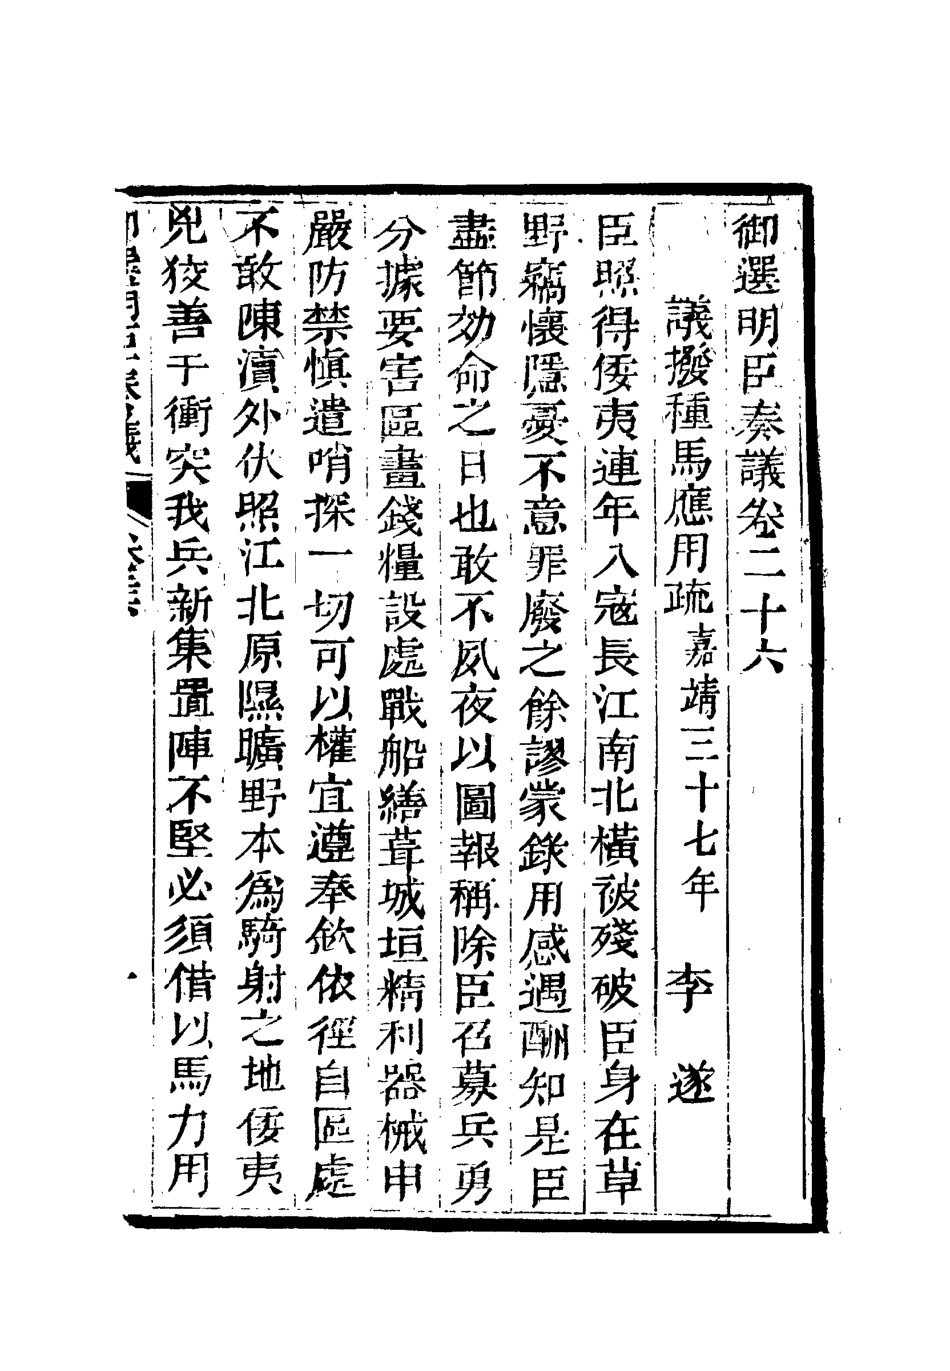 御選明臣奏議卷二十六
議撥種馬應用疏嘉靖三十七年 李遂
臣照得倭夷連年入寇長江南北橫被殘破臣身在草
野竊懷隱憂不意罪廢之餘謬蒙錄用感遇酬知是臣
盡節効命之日也敢不夙夜以圖報稱除臣召募兵勇
分據要害區畫錢糧設處戰船繕葺城垣精利器械申
嚴防禁慎遣哨探一切可以權宜遵奉欽依徑自區處
不敢陳瀆外伏照江北原隰曠野本為騎射之地倭夷
兇狡善于衝突我兵新集置陣不堅必須借以馬力用